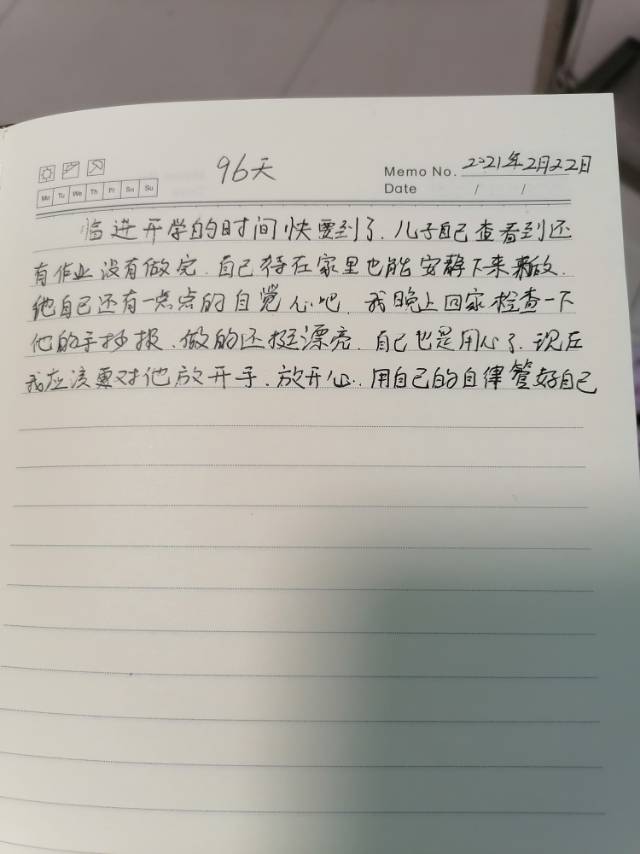 96天
Memo No. 2021年2月22日
Mo Tu We Th Fr Sa Su
Date / /
临进开学的时间快要到了.儿子自己查看到还
有作业没有做完.自己待在家里也能安静下来做.
他自己还有一点点的自觉心吧.我晚上回家检查一下
他的手抄报、做的还挺漂亮.自己也是用心了.现在
我应该要对他放开手.放开心.用自己的自律管好自己